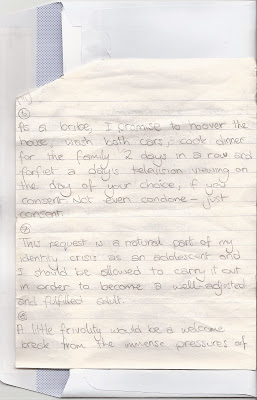 6
As a bribe, I promise to hoover the
house, wash both cars, cook dinner
for the family 2 days in a row and
forfiet a day's television viewing on
the day of your choice, if you
consent. Not even condone - just
consent.
7
This request is a natural part of my
identity crisis as an adolescent and
I should be allowed to carry it out
in order to become a well-adjusted
and fulfilled adult.
8
A little frivolity would be a welcome
break from the immense pressures of